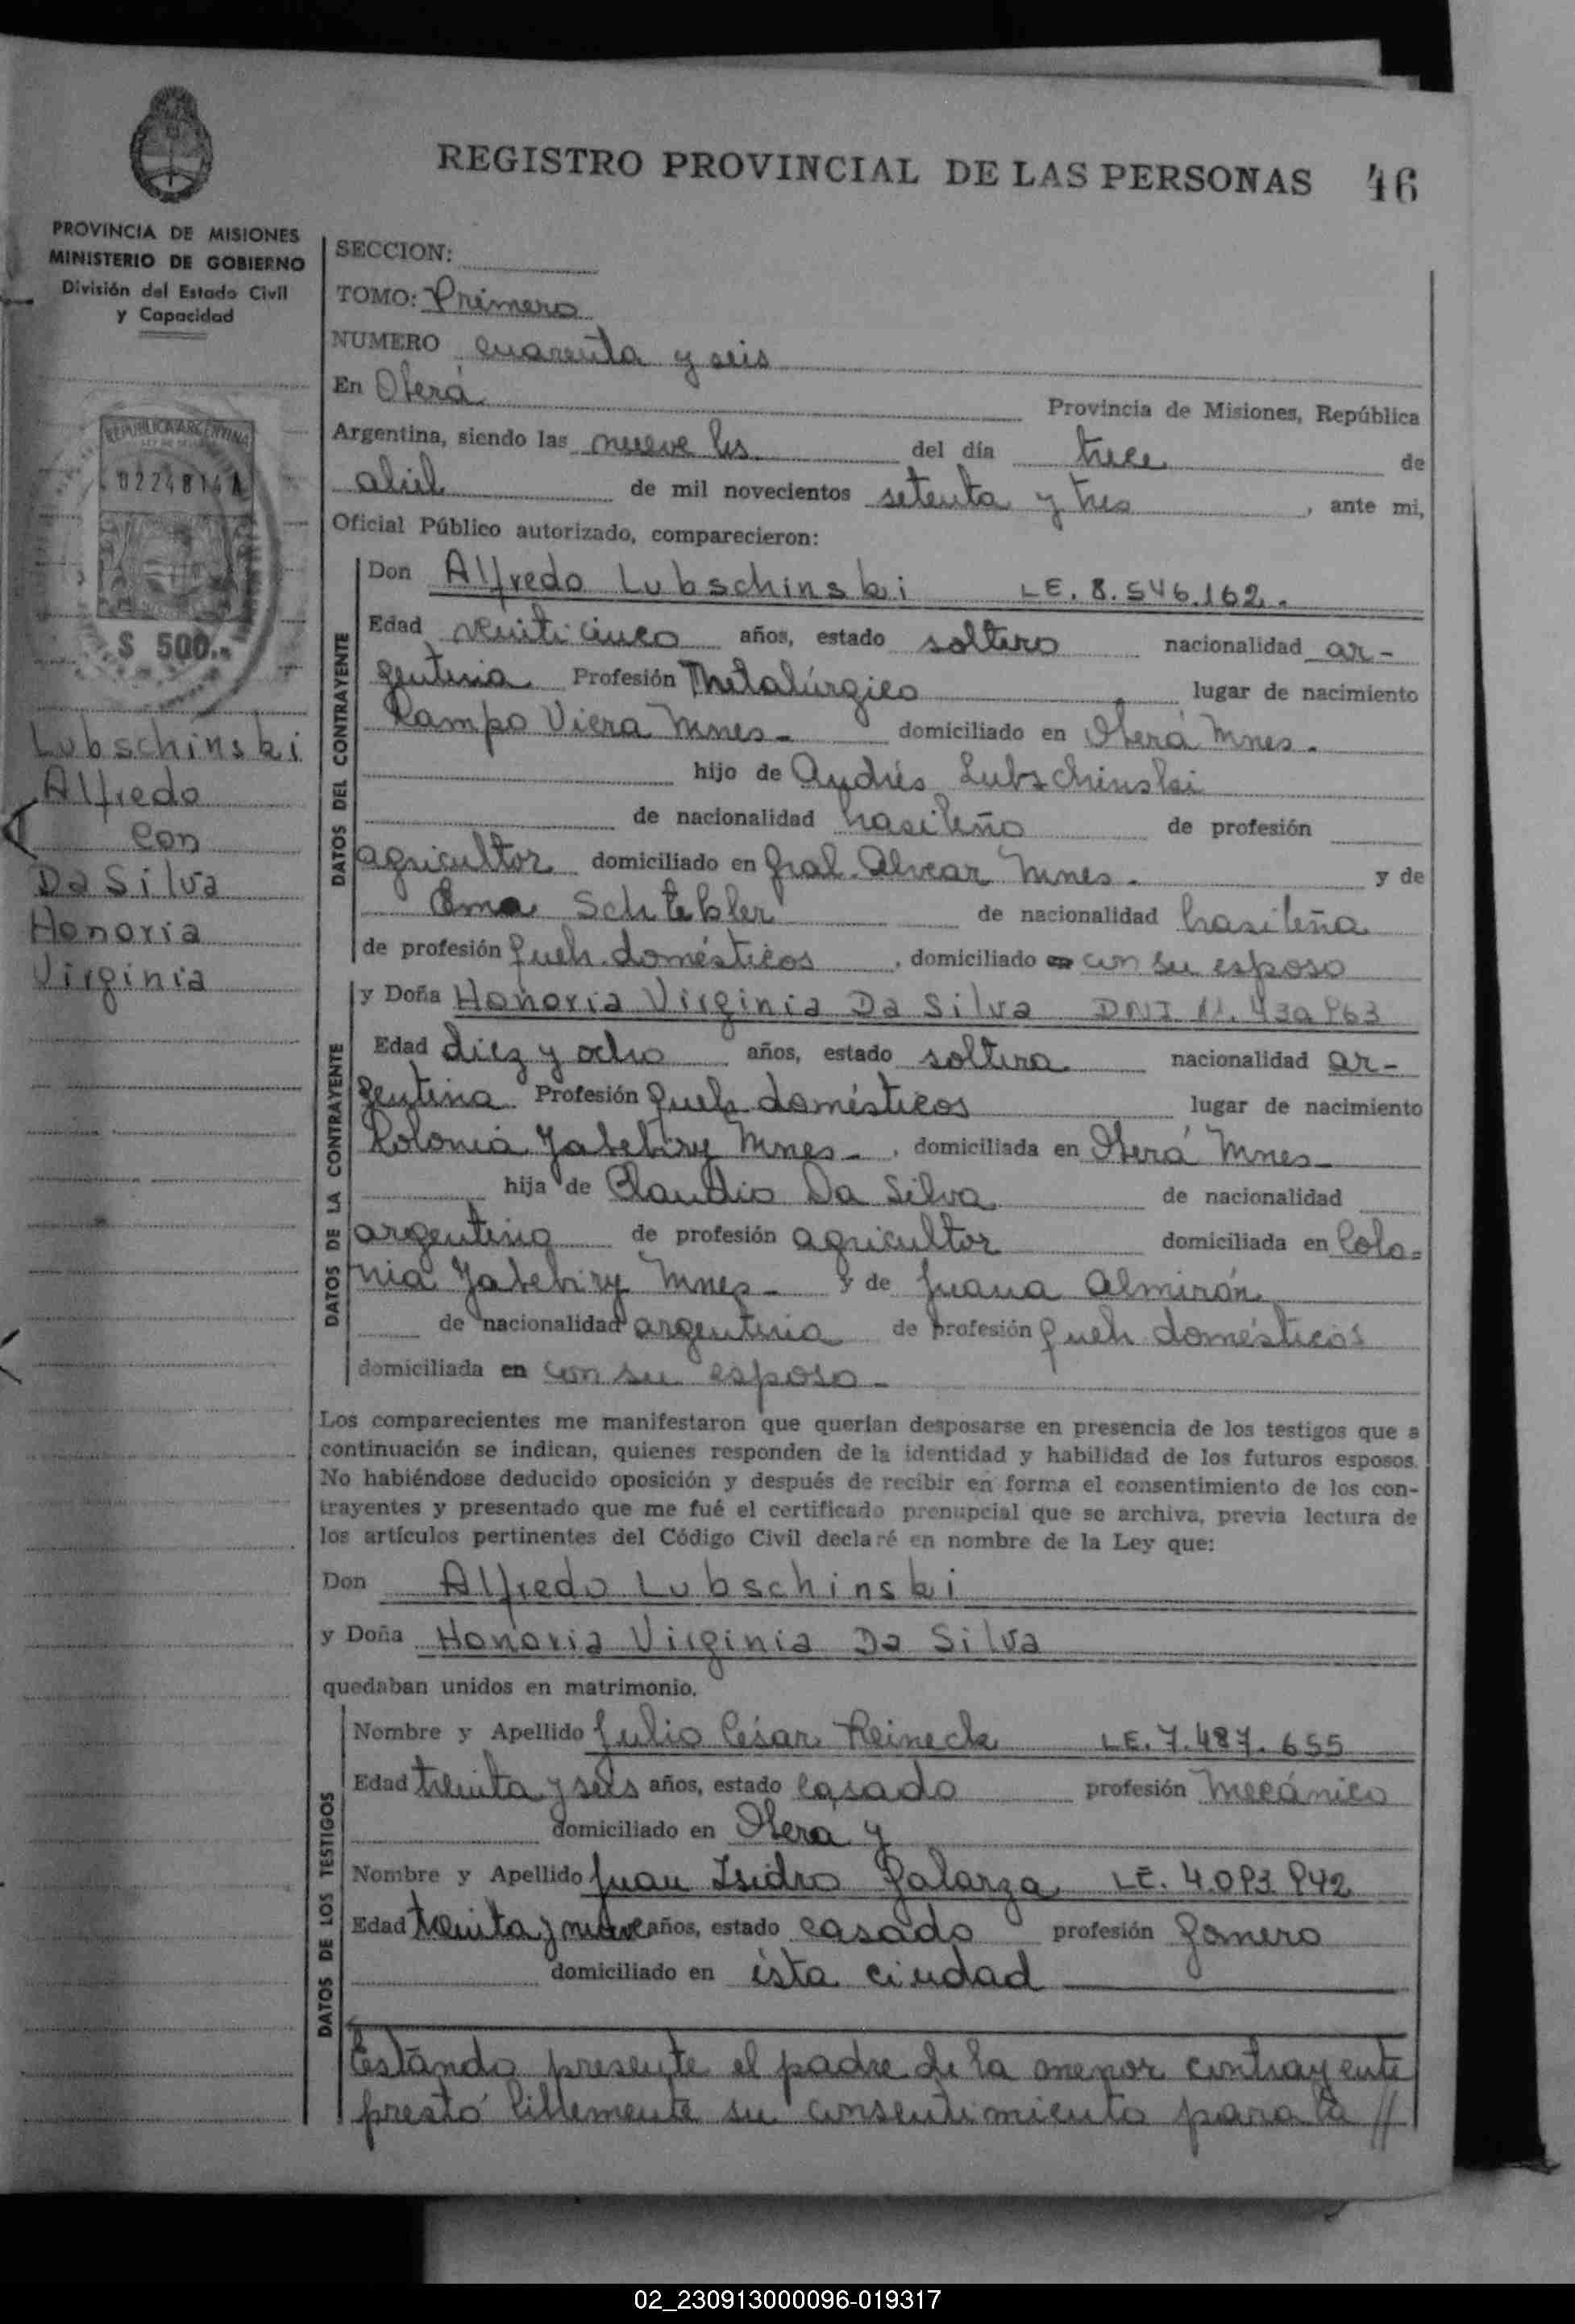 REGISTRO PROVINCIAL DE LAS PERSONAS 46
PROVINCIA DE MISIONES
MINISTERIO DE GOBIERNO
División del Estado Civil
y Capacidad
REPUBLICA ARGENTINA
$ 500.-
Lubschinski
Alfredo
con
Da Silva
Honoria
Virginia
SECCION:
TOMO: Primero
NUMERO cuarenta y seis
En Oberá Provincia de Misiones, República
Argentina, siendo las nueve hs del día trece de
abril de mil novecientos setenta y tres, ante mi,
Oficial Público autorizado, comparecieron:
DATOS DEL CONTRAYENTE
Don Alfredo Lubschinski LE. 8.546.162.
Edad veinticinco años, estado soltero nacionalidad ar-
gentina Profesión Metalúrgico lugar de nacimiento
Campo Viera Mnes.- domiciliado en Oberá Mnes.
hijo de Andrés Lubschinski
de nacionalidad brasileño de profesión
agricultor domiciliado en Gral. Alvear Mnes.- y de
Ema de nacionalidad brasileña
de profesión queh. domésticos, domiciliado en con su esposo
DATOS DE LA CONTRAYENTE
y Doña Honoria Virginia Da Silva DNI 11.430.963
Edad diez y ocho años, estado soltera nacionalidad ar-
gentina Profesión queh domésticos lugar de nacimiento
Colonia Yabebiry Mnes-, domiciliada en Oberá Mnes-
hija de Claudio Da Silva de nacionalidad
argentino de profesión agricultor domiciliada en Colo=
nia Yabebiry Mnes- y de Juana Almirón
de nacionalidad argentina de profesión queh domésticos
domiciliada en con su esposo-
Los comparecientes me manifestaron que querían desposarse en presencia de los testigos que a
continuación se indican, quienes responden de la identidad y habilidad de los futuros esposos.
No habiéndose deducido oposición y después de recibir en forma el consentimiento de los con-
trayentes y presentado que me fué el certificado prenupcial que se archiva, previa lectura de
los artículos pertinentes del Código Civil declaré en nombre de la Ley que:
Don Alfredo Lubschinski
y Doña Honoria Virginia Da Silva
quedaban unidos en matrimonio.
DATOS DE LOS TESTIGOS
Nombre y Apellido Julio César Reineck LE. 7.487.655
Edad treinta y seis años, estado casado profesión Mecánico
domiciliado en Obera y
Nombre y Apellido Juan Isidro Galarza LE. 4.093.942
Edad treinta y nueve años, estado casado profesión Gomero
domiciliado en ésta ciudad
Estando presente el padre de la menor contrayente
prestó libremente su consentimiento para la //
02_230913000096-019317